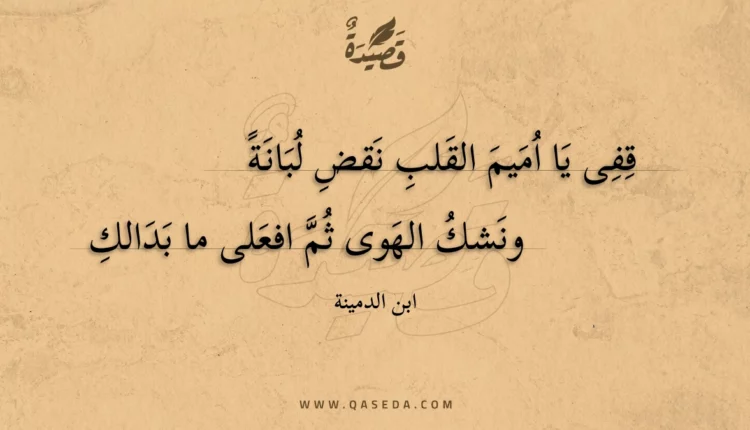 قَصِيْدَةٌ
قِفِى يَا اُمَيمَ القَلبِ نَقضِ لُبَانَةً
ونَشكُ الهَوى ثُمَّ افعَلى ما بَدَالكِ
ابن الدمينة
WWW.QASEDA.COM